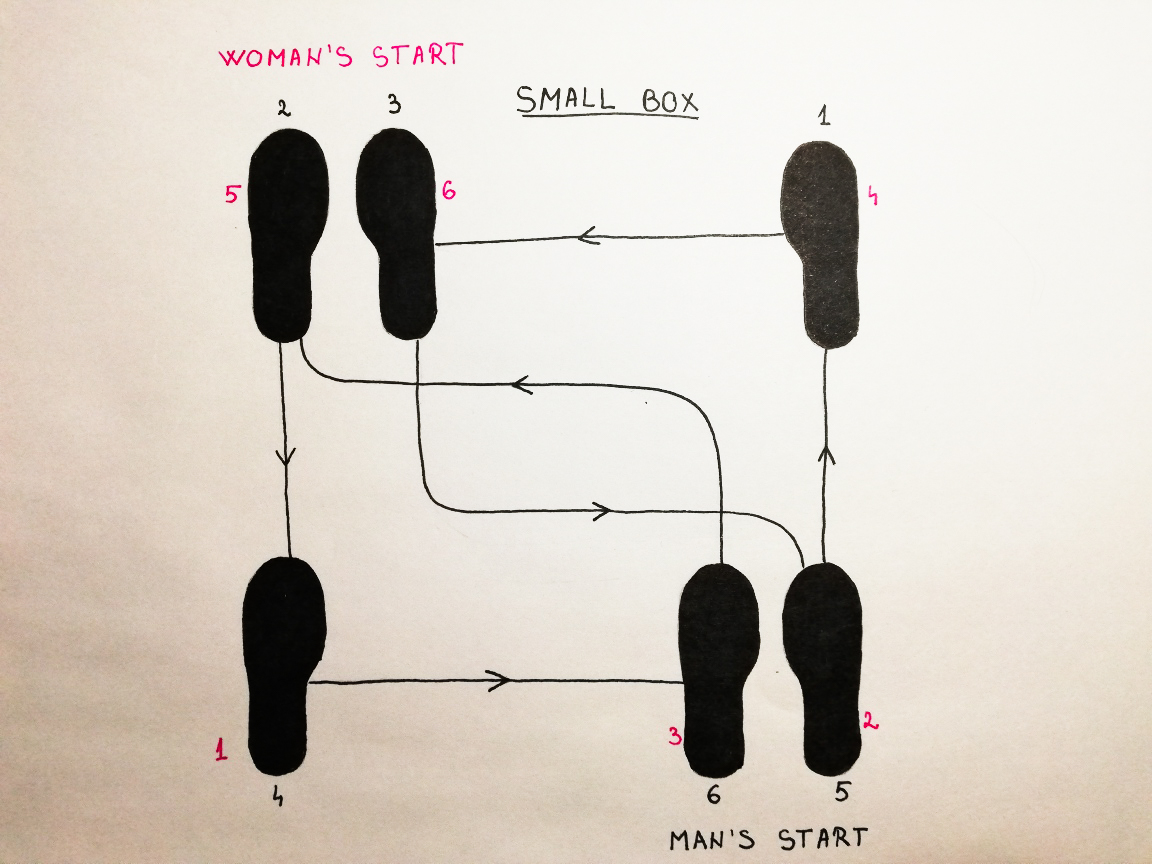 WOMAN'S START
SMALL BOX
2 3 1
5 6 4
3 2
1
4 6 5
MAN'S START